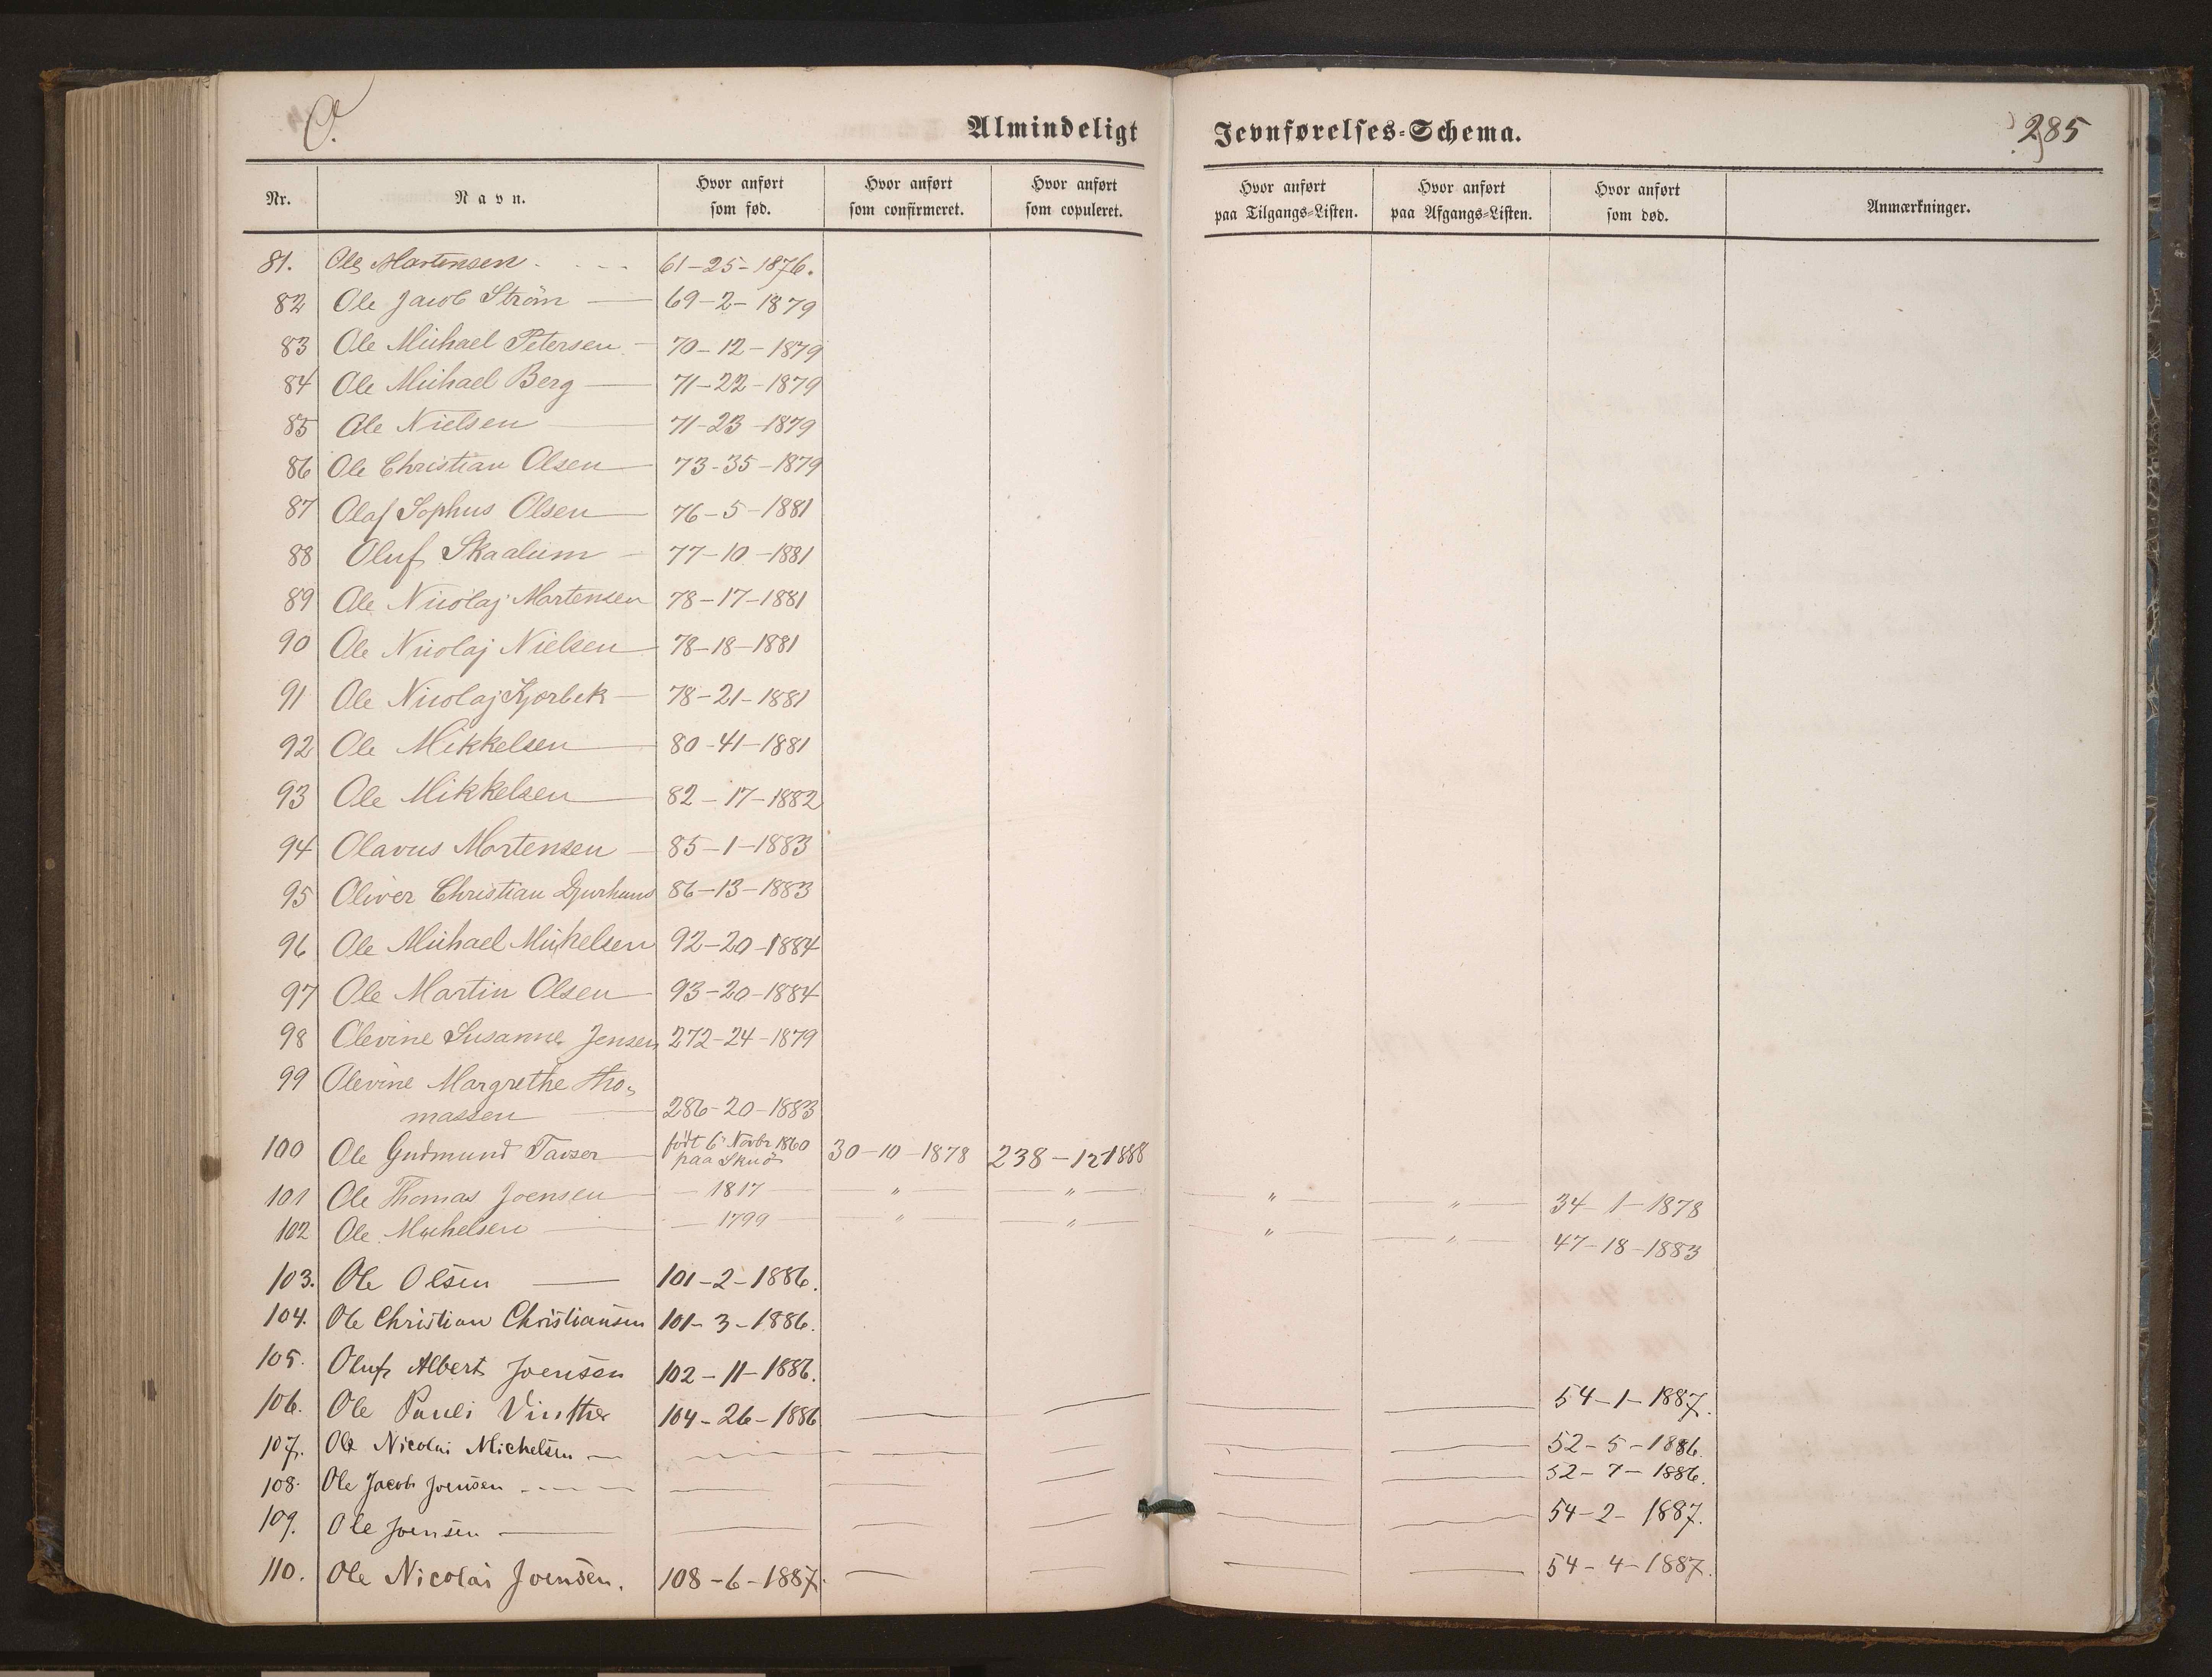 O.
Almindeligt Jevnførelses-Schema.
285
Nr. Navn. Hvor anført som fød. Hvor anført som confirmeret. Hvor anført som copuleret. Hvor anført paa Tilgangs-Listen. Hvor anført paa Afgangs-Listen. Hvor anført som død. Anmærkninger.
81. Ole Martensen 61-25-1876.
82 Ole Jacob Ström 69-2-1879
83 Ole Michael Petersen 70-12-1879
84 Ole Michael Berg 71-22-1879
85 Ole Nielsen 71-23-1879
86 Ole Christian Olsen 73-35-1879
87 Olaf Sophus Olsen 76-5-1881
88 Oluf Skaalum 77-10-1881
89 Ole Nicolaj Mortensen 78-17-1881
90 Ole Nicolaj Nielsen 78-18-1881
91 Ole Nicolaj Kjorbek 78-21-1881
92 Ole Mikkelsen 80-41-1881
93 Ole Mikkelsen 82-17-1882
94 Olavus Mortensen 85-1-1883
95 Oliver Christian Djurhuus 86-13-1883
96 Ole Michael Mikkelsen 92-20-1884
97 Ole Martin Olsen 93-20-1884
98 Olevine Susanne Jensen 272-24-1879
99 Olevine Margrethe Tho-
massen 286-20-1883
100 Ole Gudmund født 6 Novbr 1860 30-10-1878 238-12-1888
paa Skuö
101 Ole Thomas Joensen 1817 " " " " 34-1-1878
102 Ole Michelsen 1799 " " " " 47-18-1883
103. Ole Olsen 101-2-1886.
104. Ole Christian Christiansen 101-3-1886.
105. Oluf Albert Joensen 102-11-1886.
106. Ole Pauli Vinther 104-26-1886 54-1-1887.
107. Ole Nicolai Michelsen 52-5-1886.
108. Ole Jacob Joensen 52-7-1886.
109. Ole Joensen 54-2-1887.
110. Ole Nicolai Joensen. 108-6-1887. 54-4-1887.